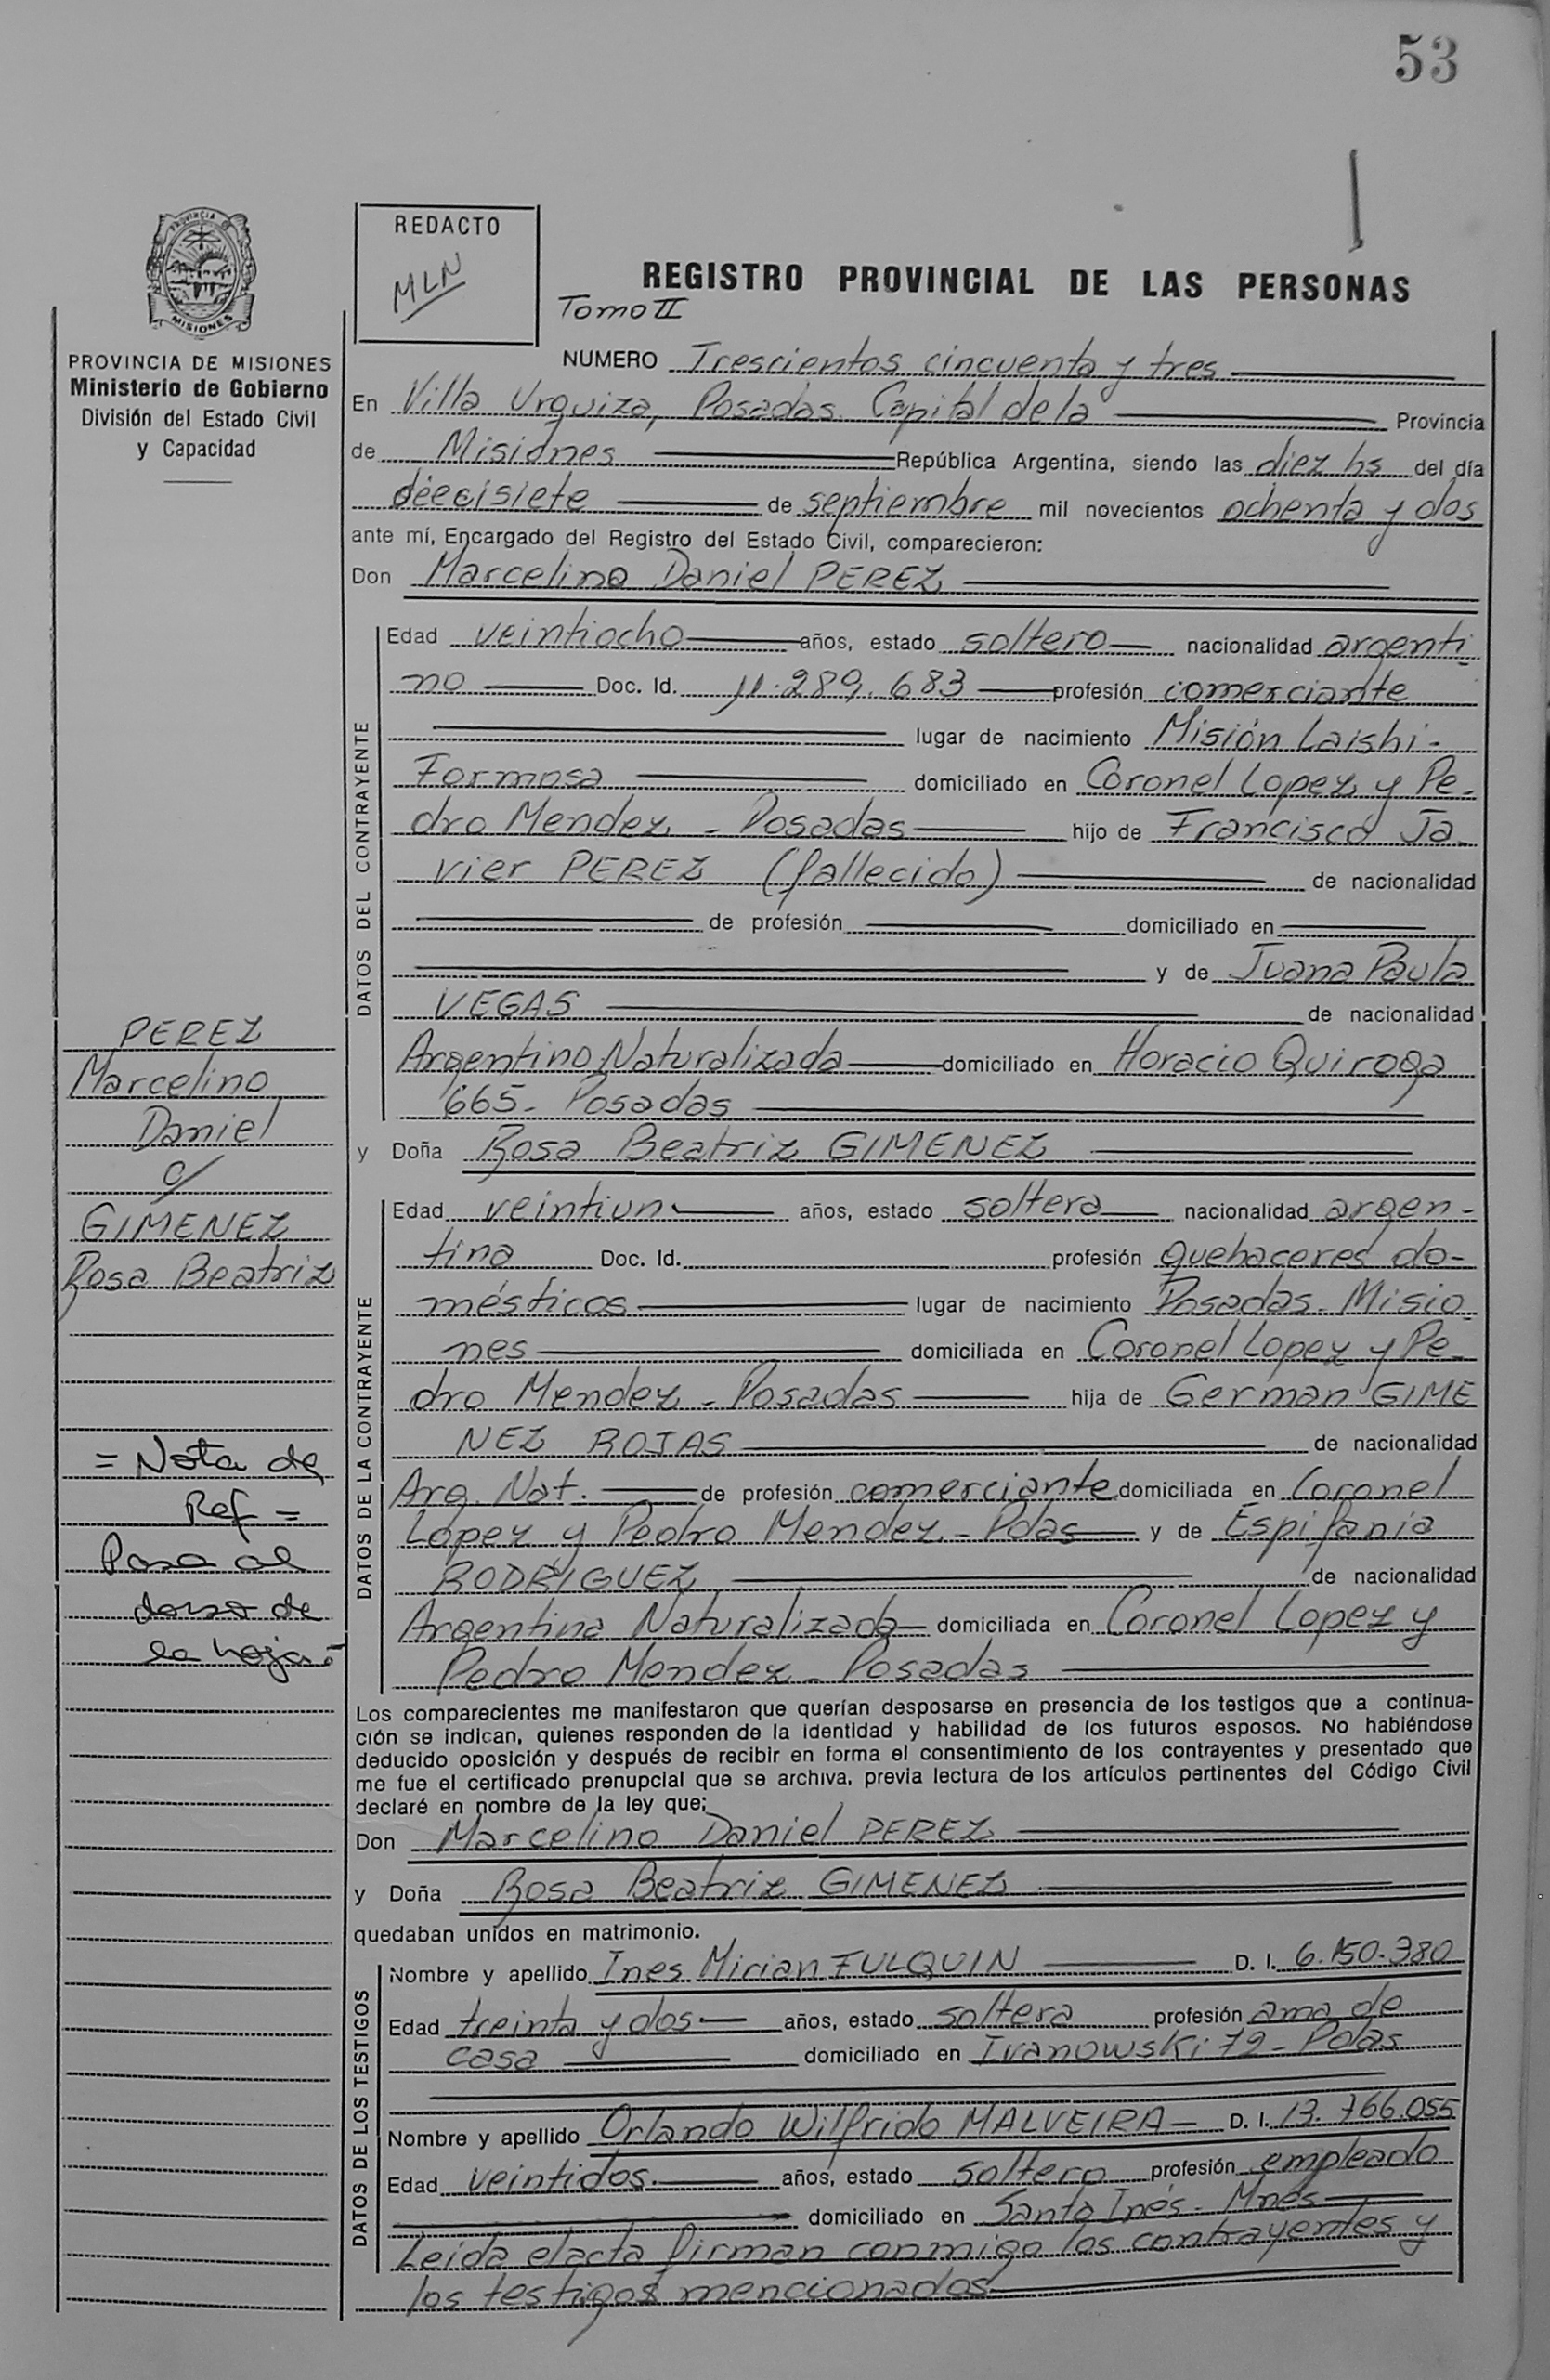 53
REDACTO
MLN
REGISTRO PROVINCIAL DE LAS PERSONAS
Tomo II
PROVINCIA
MISIONES
PROVINCIA DE MISIONES
Ministerio de Gobierno
División del Estado Civil
y Capacidad
NUMERO Trescientos cincuenta y tres
En Villa Urquiza, Posadas. Capital de la Provincia
de Misiones República Argentina, siendo las diez hs del día
diecisiete de septiembre mil novecientos ochenta y dos
ante mí, Encargado del Registro del Estado Civil, comparecieron:
Don Marcelino Daniel PEREZ
DATOS DEL CONTRAYENTE
Edad veintiocho años, estado soltero nacionalidad argenti
no Doc. Id. 11.289.683 profesión comerciante
lugar de nacimiento Misión Laishi-
Formosa domiciliado en Coronel Lopez y Pe-
dro Mendez - Posadas hijo de Francisco Ja-
vier PEREZ (fallecido) de nacionalidad
de profesión domiciliado en
y de Juana Paula
VEGAS de nacionalidad
Argentino Naturalizada domiciliado en Horacio Quiroga
665- Posadas
y Doña Rosa Beatriz GIMENEZ
PEREZ
Marcelino
Daniel
c/
GIMENEZ
Rosa Beatriz
= Nota de
Ref =
Pasa al
dorso de
la hoja.-
DATOS DE LA CONTRAYENTE
Edad veintiun años, estado soltera nacionalidad argen-
tina Doc. Id. profesión quehaceres do-
mésticos lugar de nacimiento Posadas- Misio
nes domiciliada en Coronel Lopez y Pe-
dro Mendez - Posadas hija de German GIME
NEZ ROJAS de nacionalidad
Arg. Nat. de profesión comerciante domiciliada en Coronel
Lopez y Pedro Mendez - Pdas y de Espifania
RODRIGUEZ de nacionalidad
Argentina Naturalizada domiciliada en Coronel Lopez y
Pedro Mendez - Posadas
Los comparecientes me manifestaron que querían desposarse en presencia de los testigos que a continua-
ción se indican, quienes responden de la identidad y habilidad de los futuros esposos. No habiéndose
deducido oposición y después de recibir en forma el consentimiento de los contrayentes y presentado que
me fue el certificado prenupcial que se archiva, previa lectura de los artículos pertinentes del Código Civil
declaré en nombre de la ley que:
Don Marcelino Daniel PEREZ
y Doña Rosa Beatriz GIMENEZ
quedaban unidos en matrimonio.
DATOS DE LOS TESTIGOS
Nombre y apellido Ines Mirian FULQUIN D. I. 6.150.380
Edad treinta y dos años, estado soltera profesión ama de
casa domiciliado en Ivanowski 72- Pdas
Nombre y apellido Orlando Wilfrido MALVEIRA D. I. 13.766.055
Edad veintidos años, estado soltero profesión empleado
domiciliado en Santa Inés- Mnes
Leida el acta firman conmigo los contrayentes y
los testigos mencionados